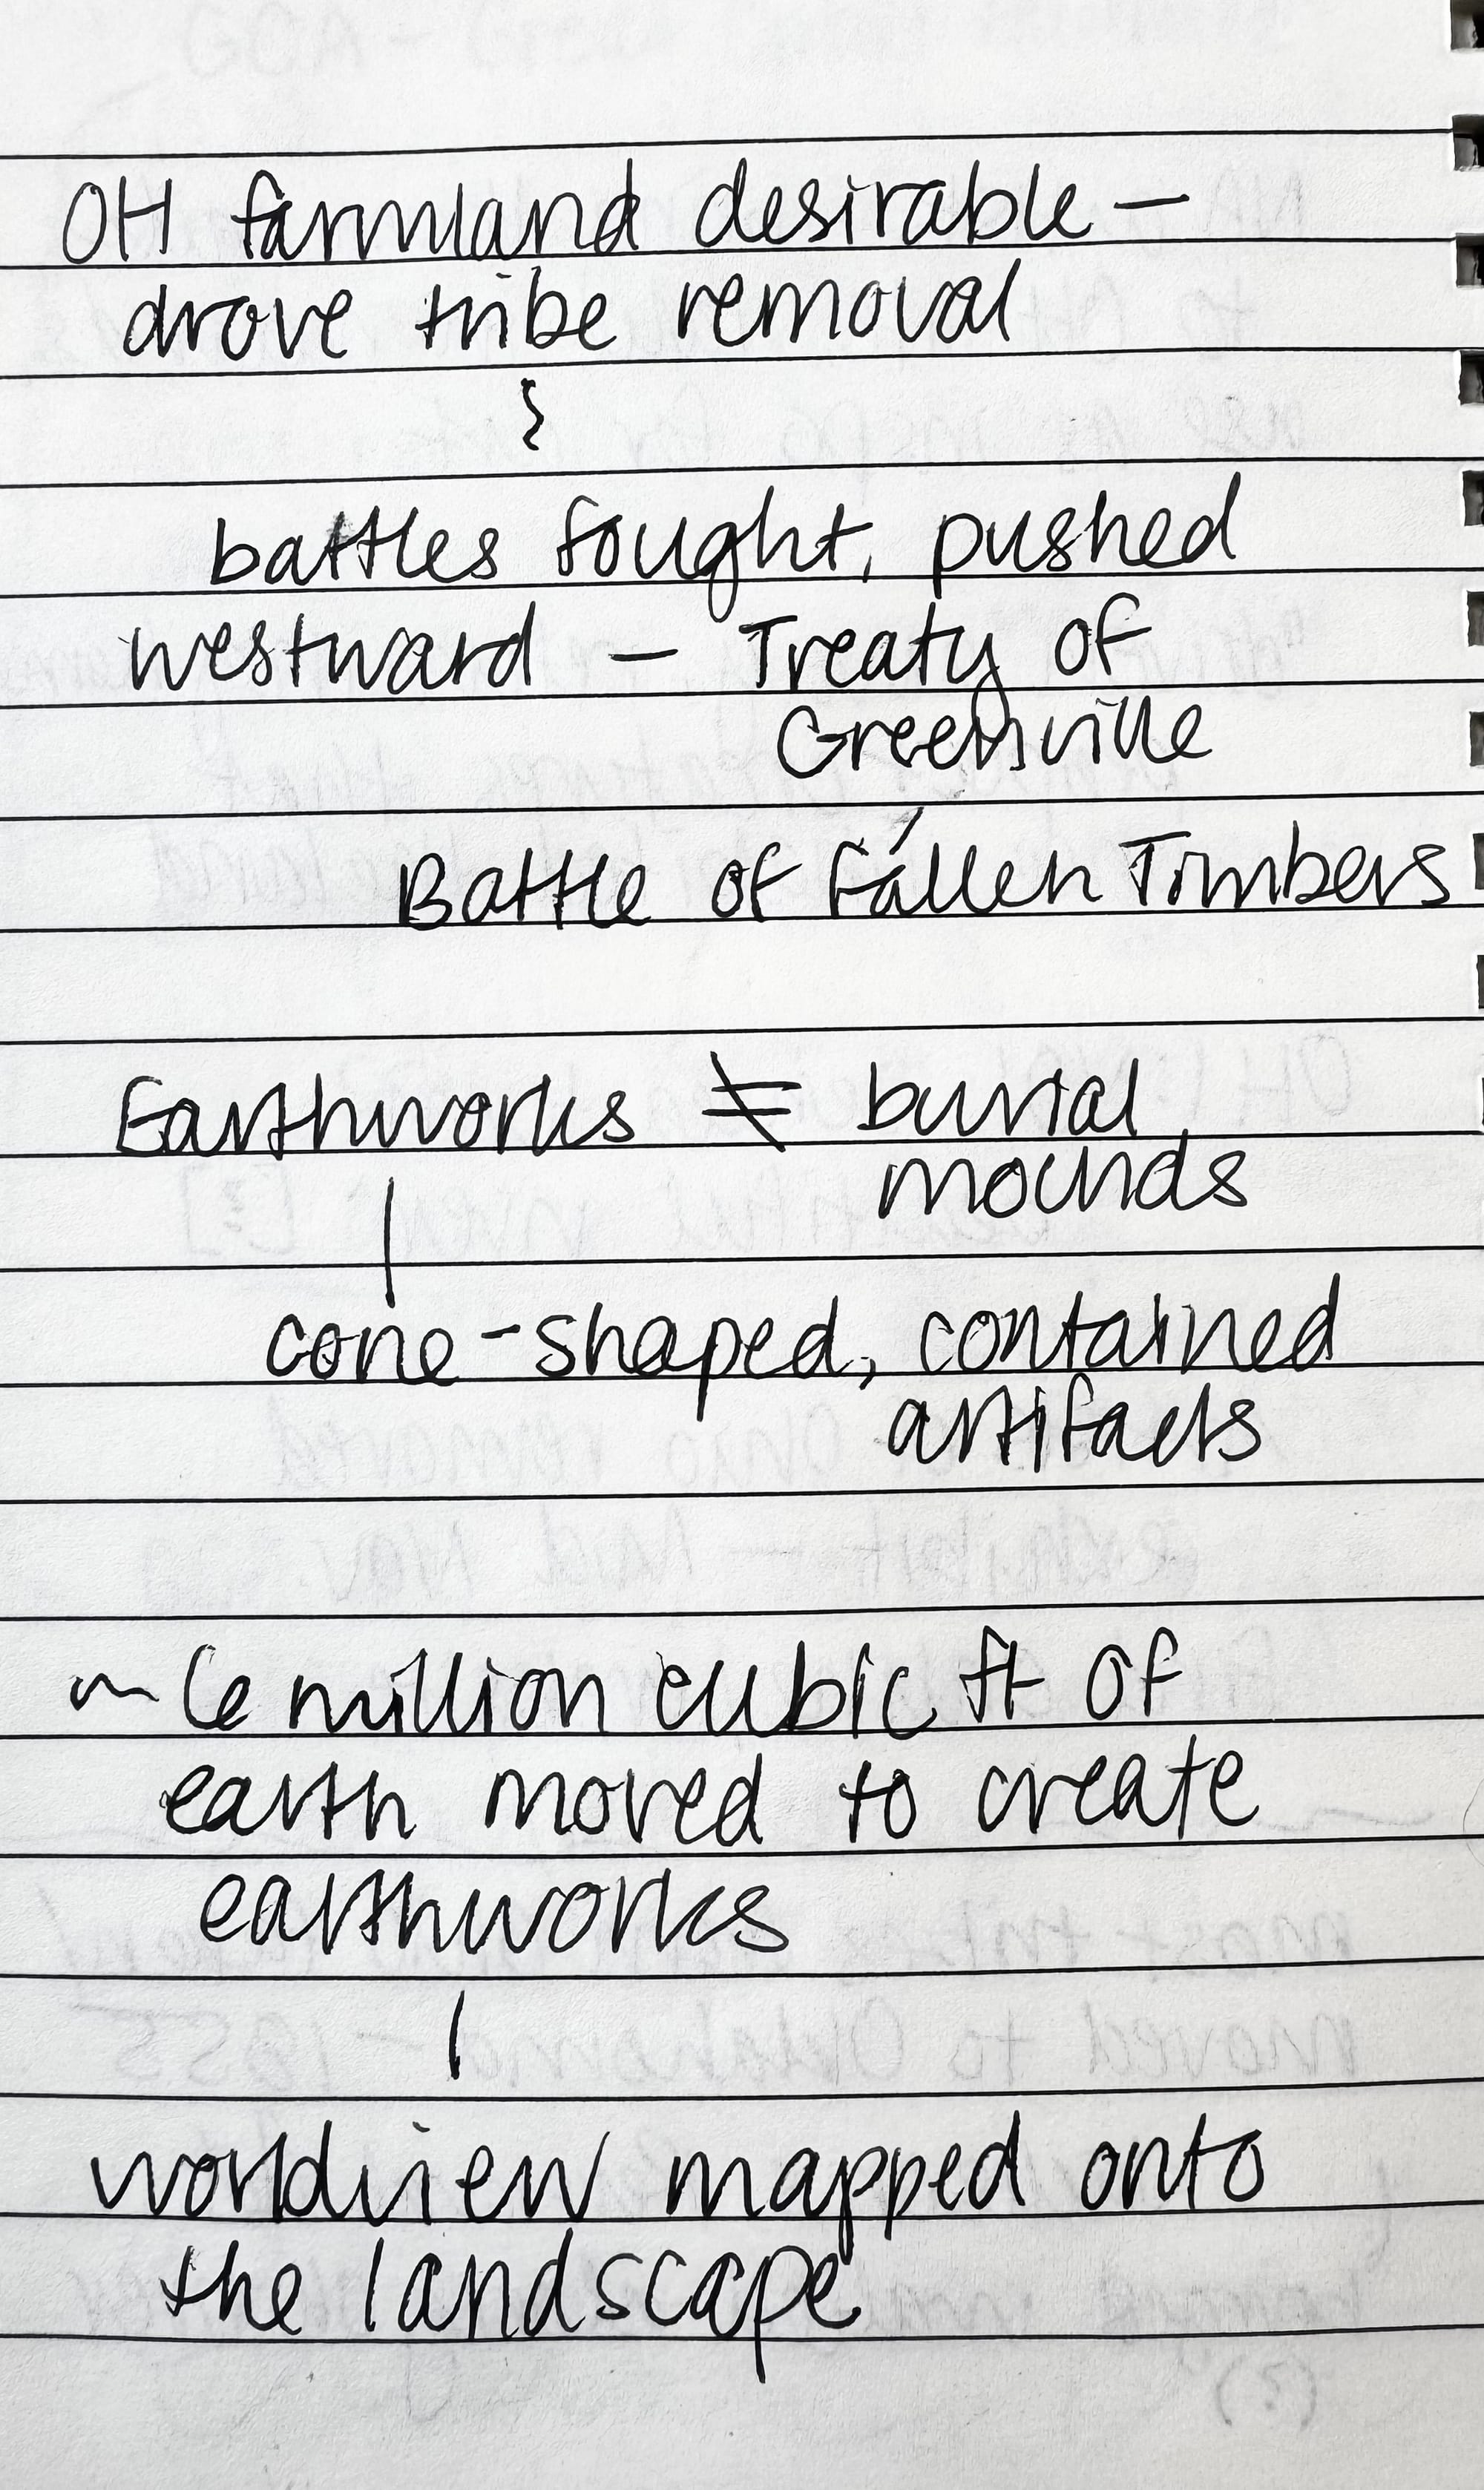 OH farmland desirable —
drove tribe removal
battles fought, pushed
westward — Treaty of
Greenville
Battle of Fallen Timbers
Earthworks ≠ burial
mounds
cone-shaped, contained
artifacts
~ 6 million cubic ft of
earth moved to create
earthworks
worldview mapped onto
the landscape